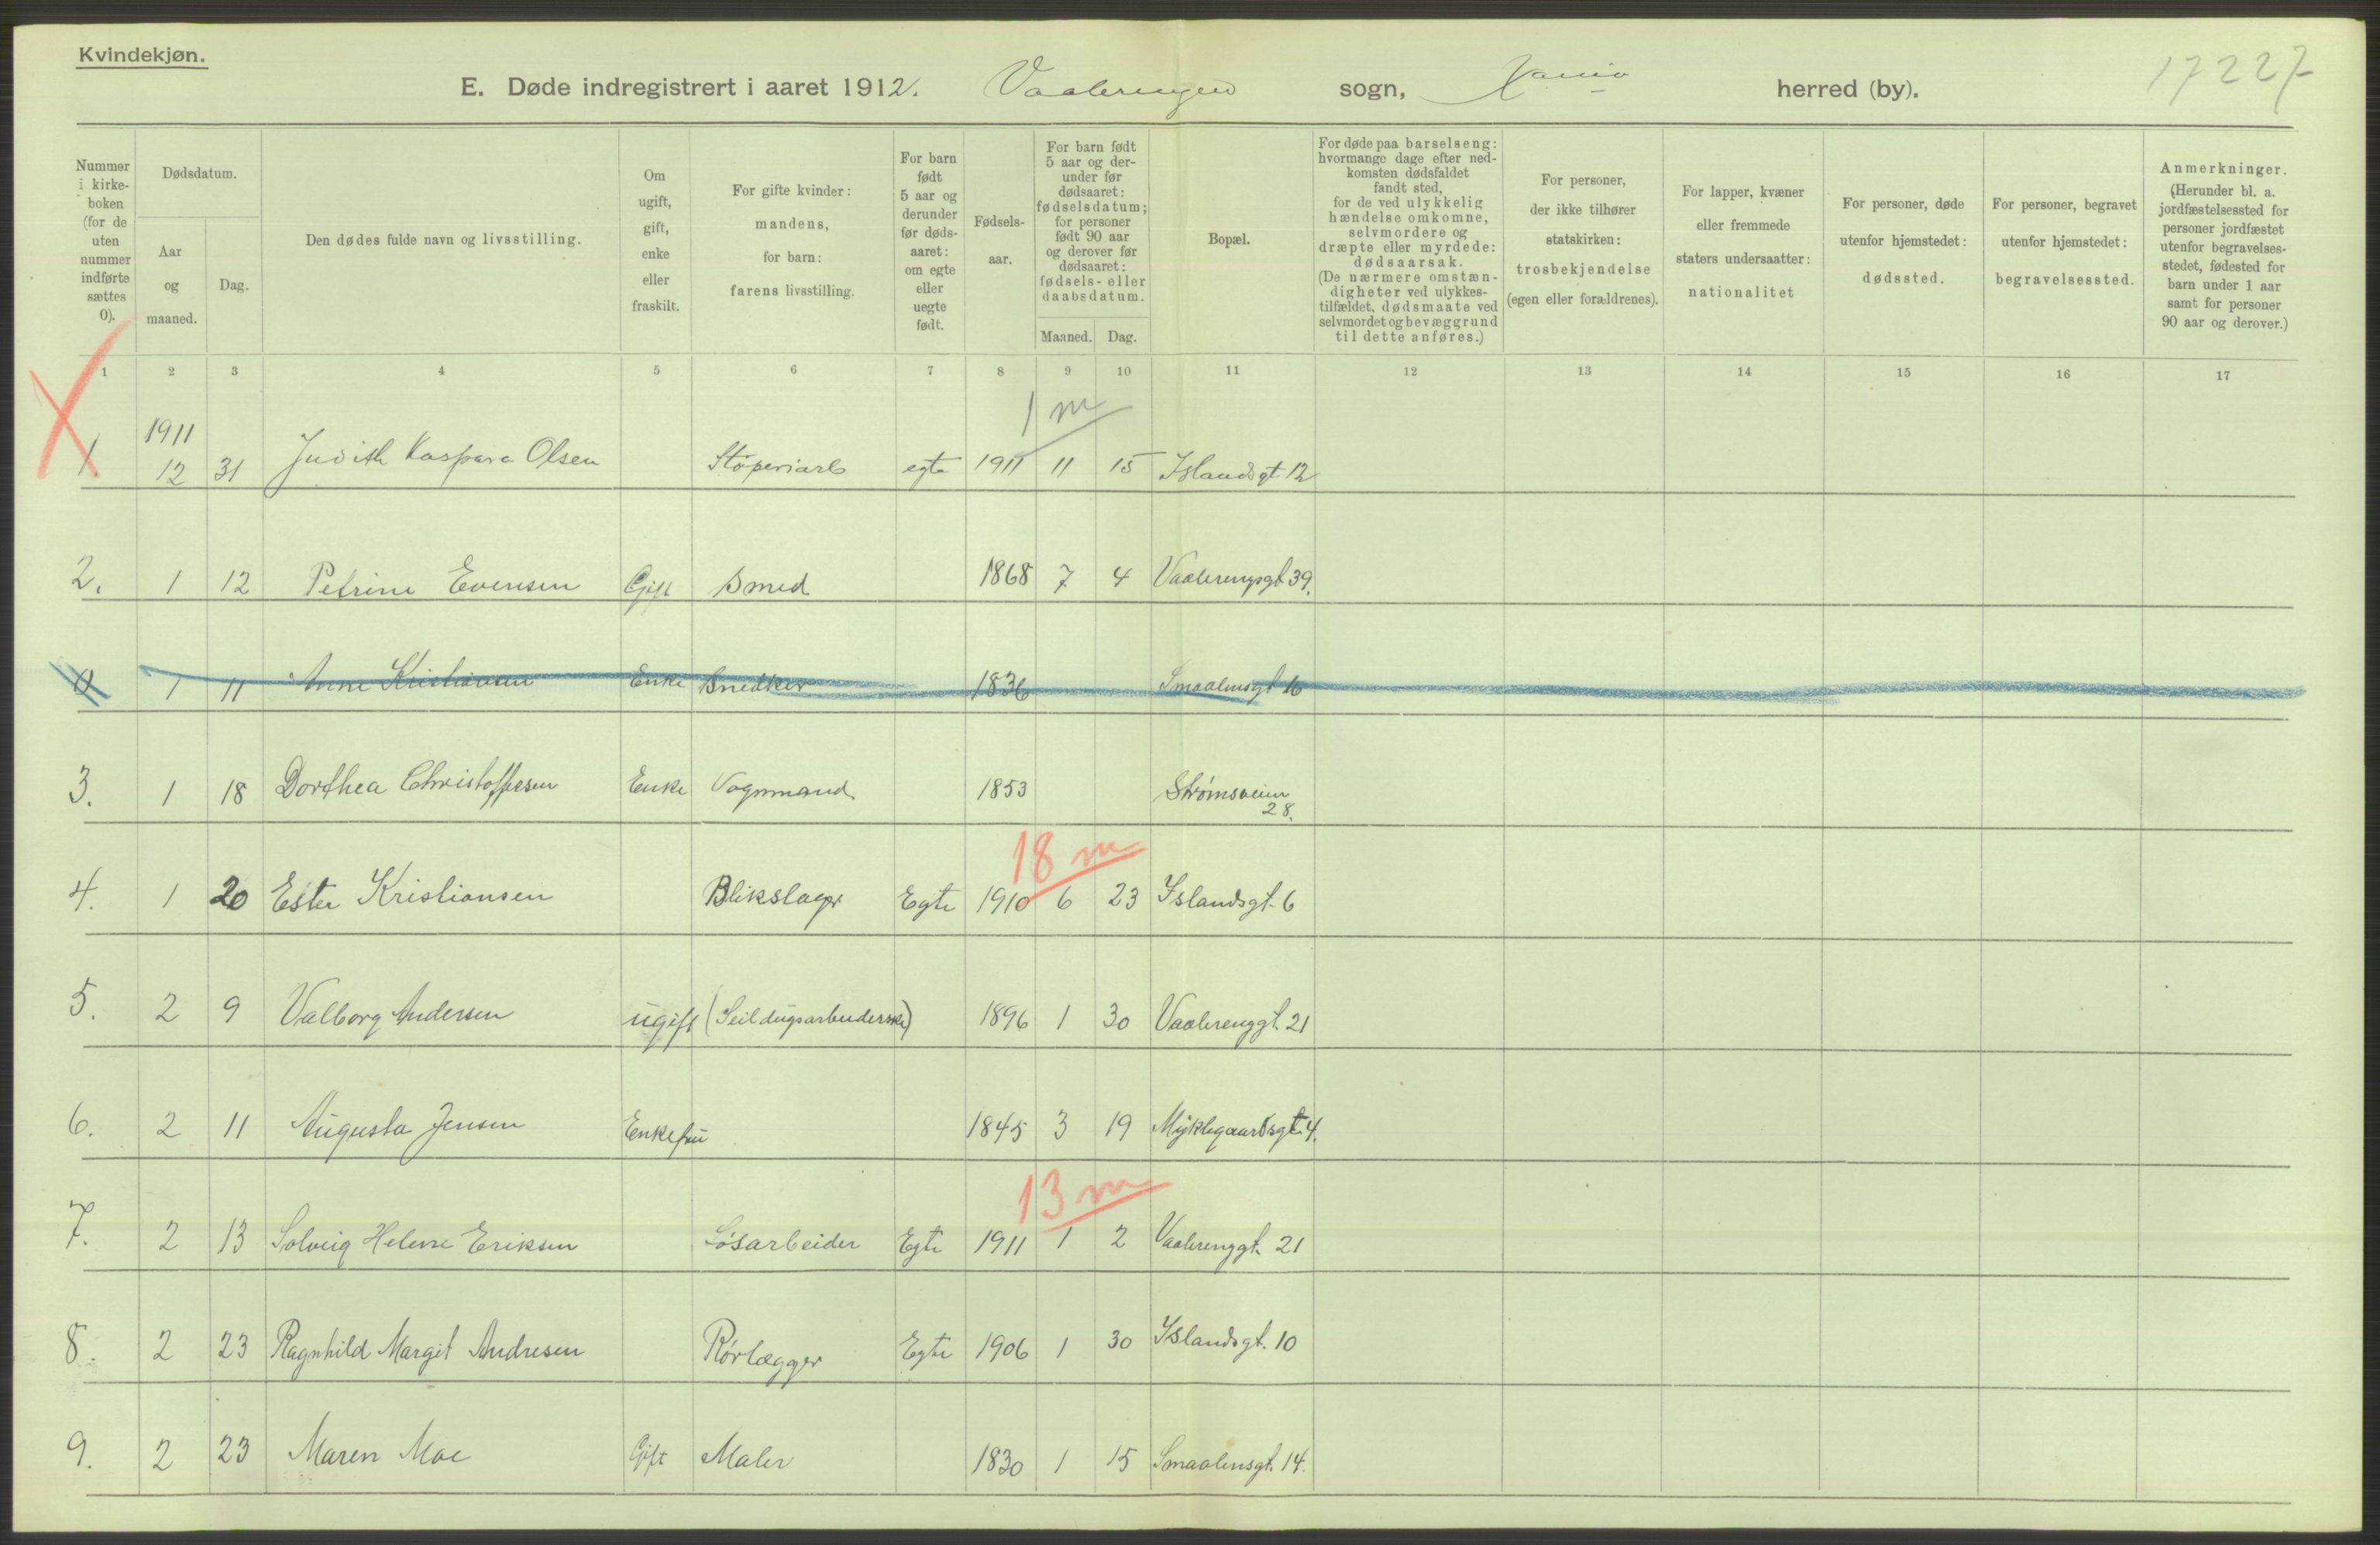 Kvindekjøn.
E. Døde indregistrert i aaret 1912. Vaalerengen sogn, Xania herred (by).
17227
Nummer i kirke-boken (for de uten nummer indførte sættes 0).
Dødsdatum.
Aar og maaned.
Dag.
Den dødes fulde navn og livsstilling.
Om ugift, gift, enke eller fraskilt.
For gifte kvinder: mandens, for barn: farens livsstilling.
For barn født 5 aar og derunder før døds-aaret: om egte eller uegte født.
Fødsels-aar.
For barn født 5 aar og der-under før dødsaaret: fødselsdatum; for personer født 90 aar og derover før dødsaaret: fødsels- eller daabsdatum.
Maaned. Dag.
Bopæl.
For døde paa barselseng: hvormange dage efter ned-komsten dødsfaldet fandt sted, for de ved ulykkelig hændelse omkomne, selvmordere og dræpte eller myrdede: dødsaarsak. (De nærmere omstæn-digheter ved ulykkes-tilfældet, dødsmaate ved selvmordet og bevæggrund til dette anføres.)
For personer, der ikke tilhører statskirken: trosbekjendelse (egen eller forældrenes).
For lapper, kvæner eller fremmede staters undersaatter: nationalitet
For personer, døde utenfor hjemstedet: dødssted.
For personer, begravet utenfor hjemstedet: begravelsessted.
Anmerkninger. (Herunder bl. a. jordfæstelsessted for personer jordfæstet utenfor begravelses-stedet, fødested for barn under 1 aar samt for personer 90 aar og derover.)
1 2 3 4 5 6 7 8 9 10 11 12 13 14 15 16 17
1 m
1. 1911 12 31 Judith Kaspara Olsen Støperiarb egte 1911 11 15 Islandsgt 12
2. 1 12 Petrine Evensen Gift Smed 1868 7 4 Vaalerengsgt 39.
0 1 11 Anne Kristiansen Enke Snedker 1836 Smaalensgt 16
3. 1 18 Dorthea Christoffersen Enke Vognmand 1853 Strømsveien 28.
18 m
4. 1 20 Ester Kristiansen Blikslager Egte 1910 6 23 Islandsgt. 6
5. 2 9 Valborg Andersen ugift (Seildugsarbeiderske) 1896 1 30 Vaalerenggt. 21
6. 2 11 Augusta Jensen Enkefru 1845 3 19 Myklegaardsgt. 4.
13 m
7. 2 13 Solveig Helene Eriksen Løsarbeider Egte 1911 1 2 Vaalerenggt. 21
8. 2 23 Ragnhild Margit Andresen Rørlægger Egte 1906 1 30 Islandsgt. 10
9. 2 23 Maren Moe Gift Maler 1830 1 15 Smaalensgt. 14.